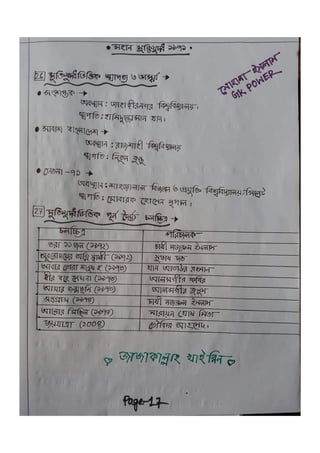 • মহান মুক্তিযুদ্ধ ১৯৭১
সোহেল ইসলাম
GK POWER
২৬ মুক্তিযুদ্ধভিত্তিক স্থাপত্য ও ভাস্কর্য →
• সংশপ্তক →
অবস্থান : জাহাঙ্গীরনগর বিশ্ববিদ্যালয়।
স্থপতি : হামিদুজ্জামান খান।
• সাবাস বাংলাদেশ →
অবস্থান : রাজশাহী বিশ্ববিদ্যালয়
স্থপতি : নিতুন কুন্ডু
• চেতনা-৭১ →
অবস্থান : শাহজালাল বিজ্ঞান ও প্রযুক্তি বিশ্ববিদ্যালয়, সিলেট
স্থপতি : মোবারক হোসেন নৃপাল।
২৭ মুক্তিযুদ্ধভিত্তিক পূর্ণ দৈর্ঘ্য চলচ্চিত্র →
চলচ্চিত্র পরিচালক
ওরা ১১ জন (১৯৭২) চাষী নজরুল ইসলাম
অরুণোদয়ের অগ্নি সাক্ষী (১৯৭২) সুভাষ দত্ত
আবার তোরা মানুষ হ (১৯৭৩) খান আতাউর রহমান
ধীরে বহে মেঘনা (১৯৭৩) আলমগীর কবির
আমার জন্মভূমি (১৯৭৩) আলমগীর কুমকুম
সংগ্রাম (১৯৭৪) চাষী নজরুল ইসলাম
আলোর মিছিল (১৯৭৪) নারায়ন ঘোষ মিতা
জয়যাত্রা (2004) তৌকির আহমেদ।
জাজাকাল্লাহ খাইরান
Page-17